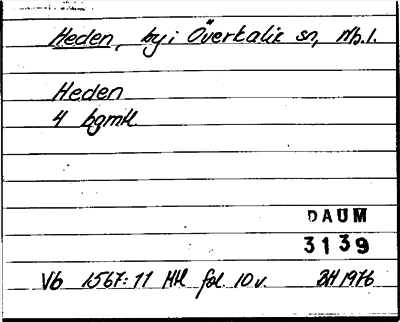 Heden, by i Överkalix sn, Nb.l.
Heden
4 bgmtl.
DAUM
3139
Vb 1567:11 Mtl fol. 10 v. BH 1976